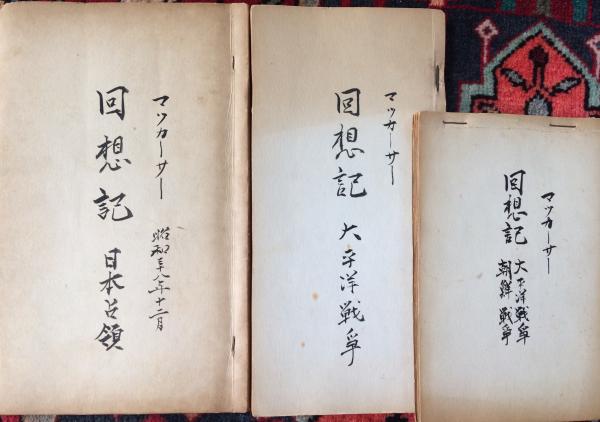 マッカーサー
昭和三十八年十二月
回想記 日本占領
マッカーサー
回想記 大平洋戦争
マッカーサー
回想記 大平洋戦争
朝鮮戦争